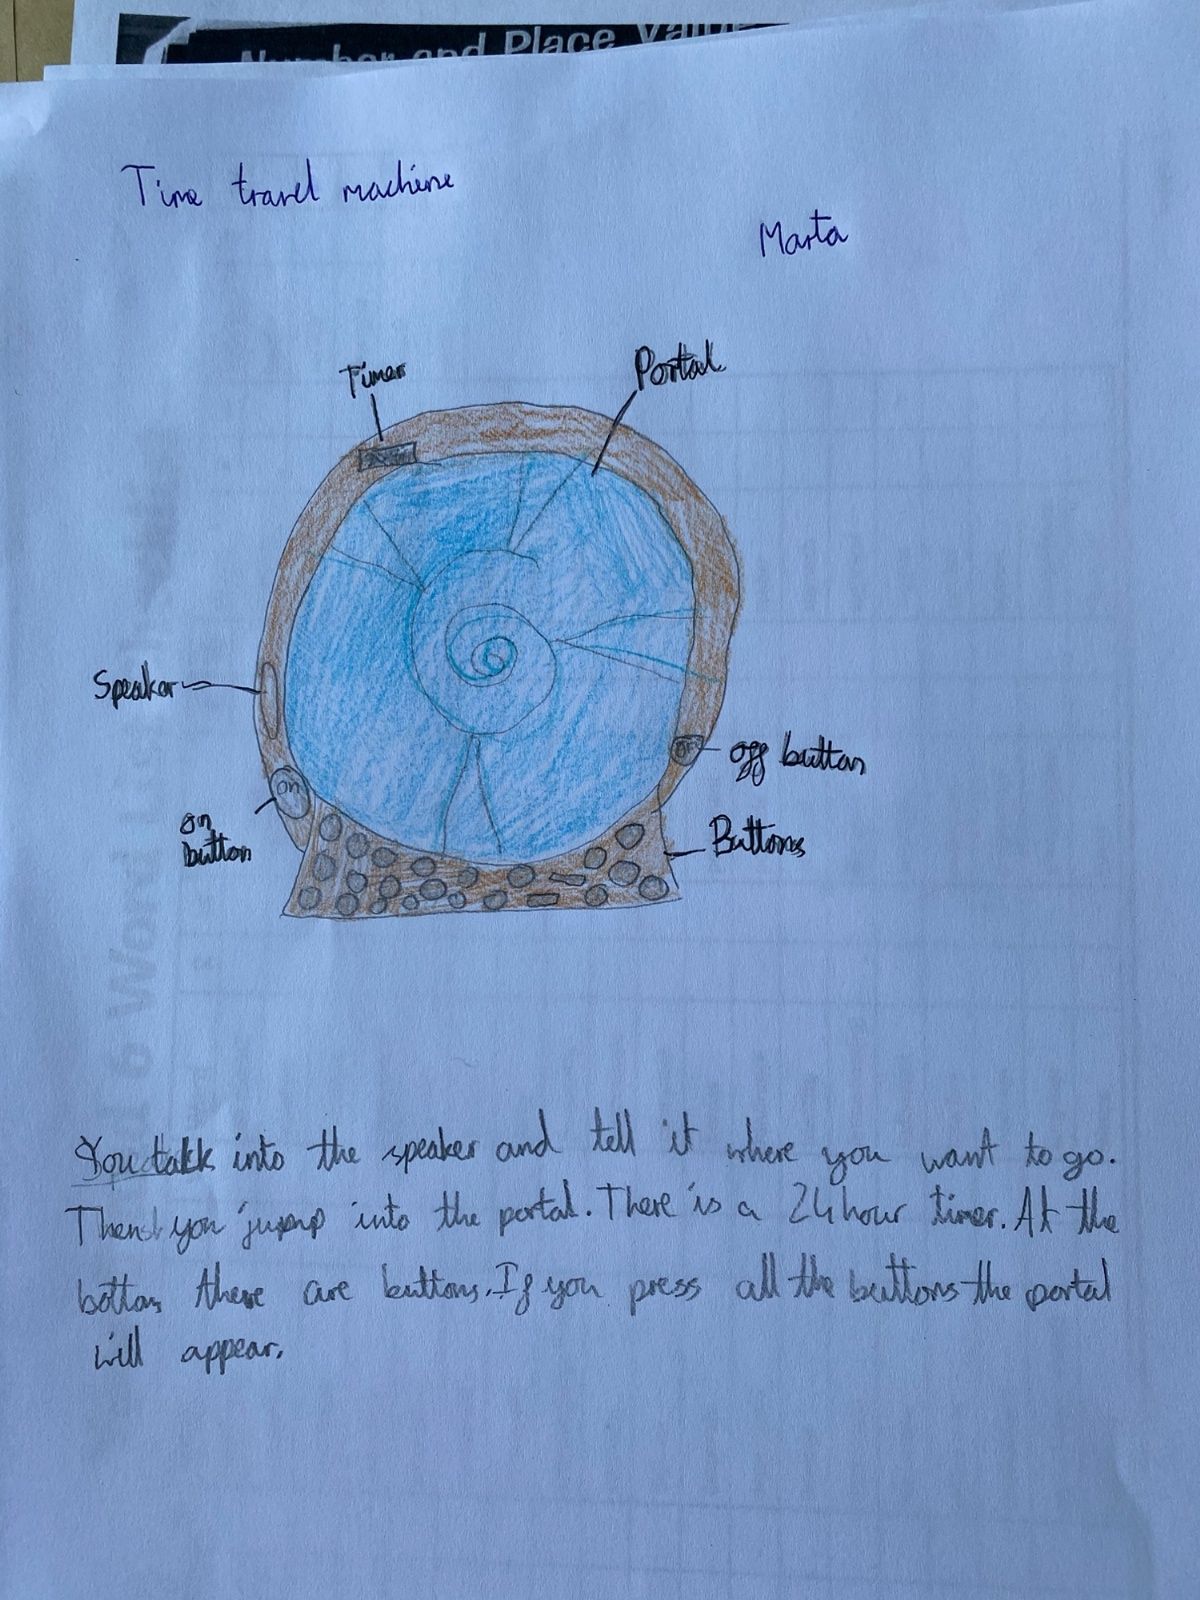 Number and Place Value
Time travel machine
Marta
Timer
Portal
Speaker
off button
on
button
Buttons
on
OFF
You talk into the speaker and tell it where you want to go.
Then you jump into the portal. There is a 24 hour timer. At the
bottom there are buttons. If you press all the buttons the portal
will appear.